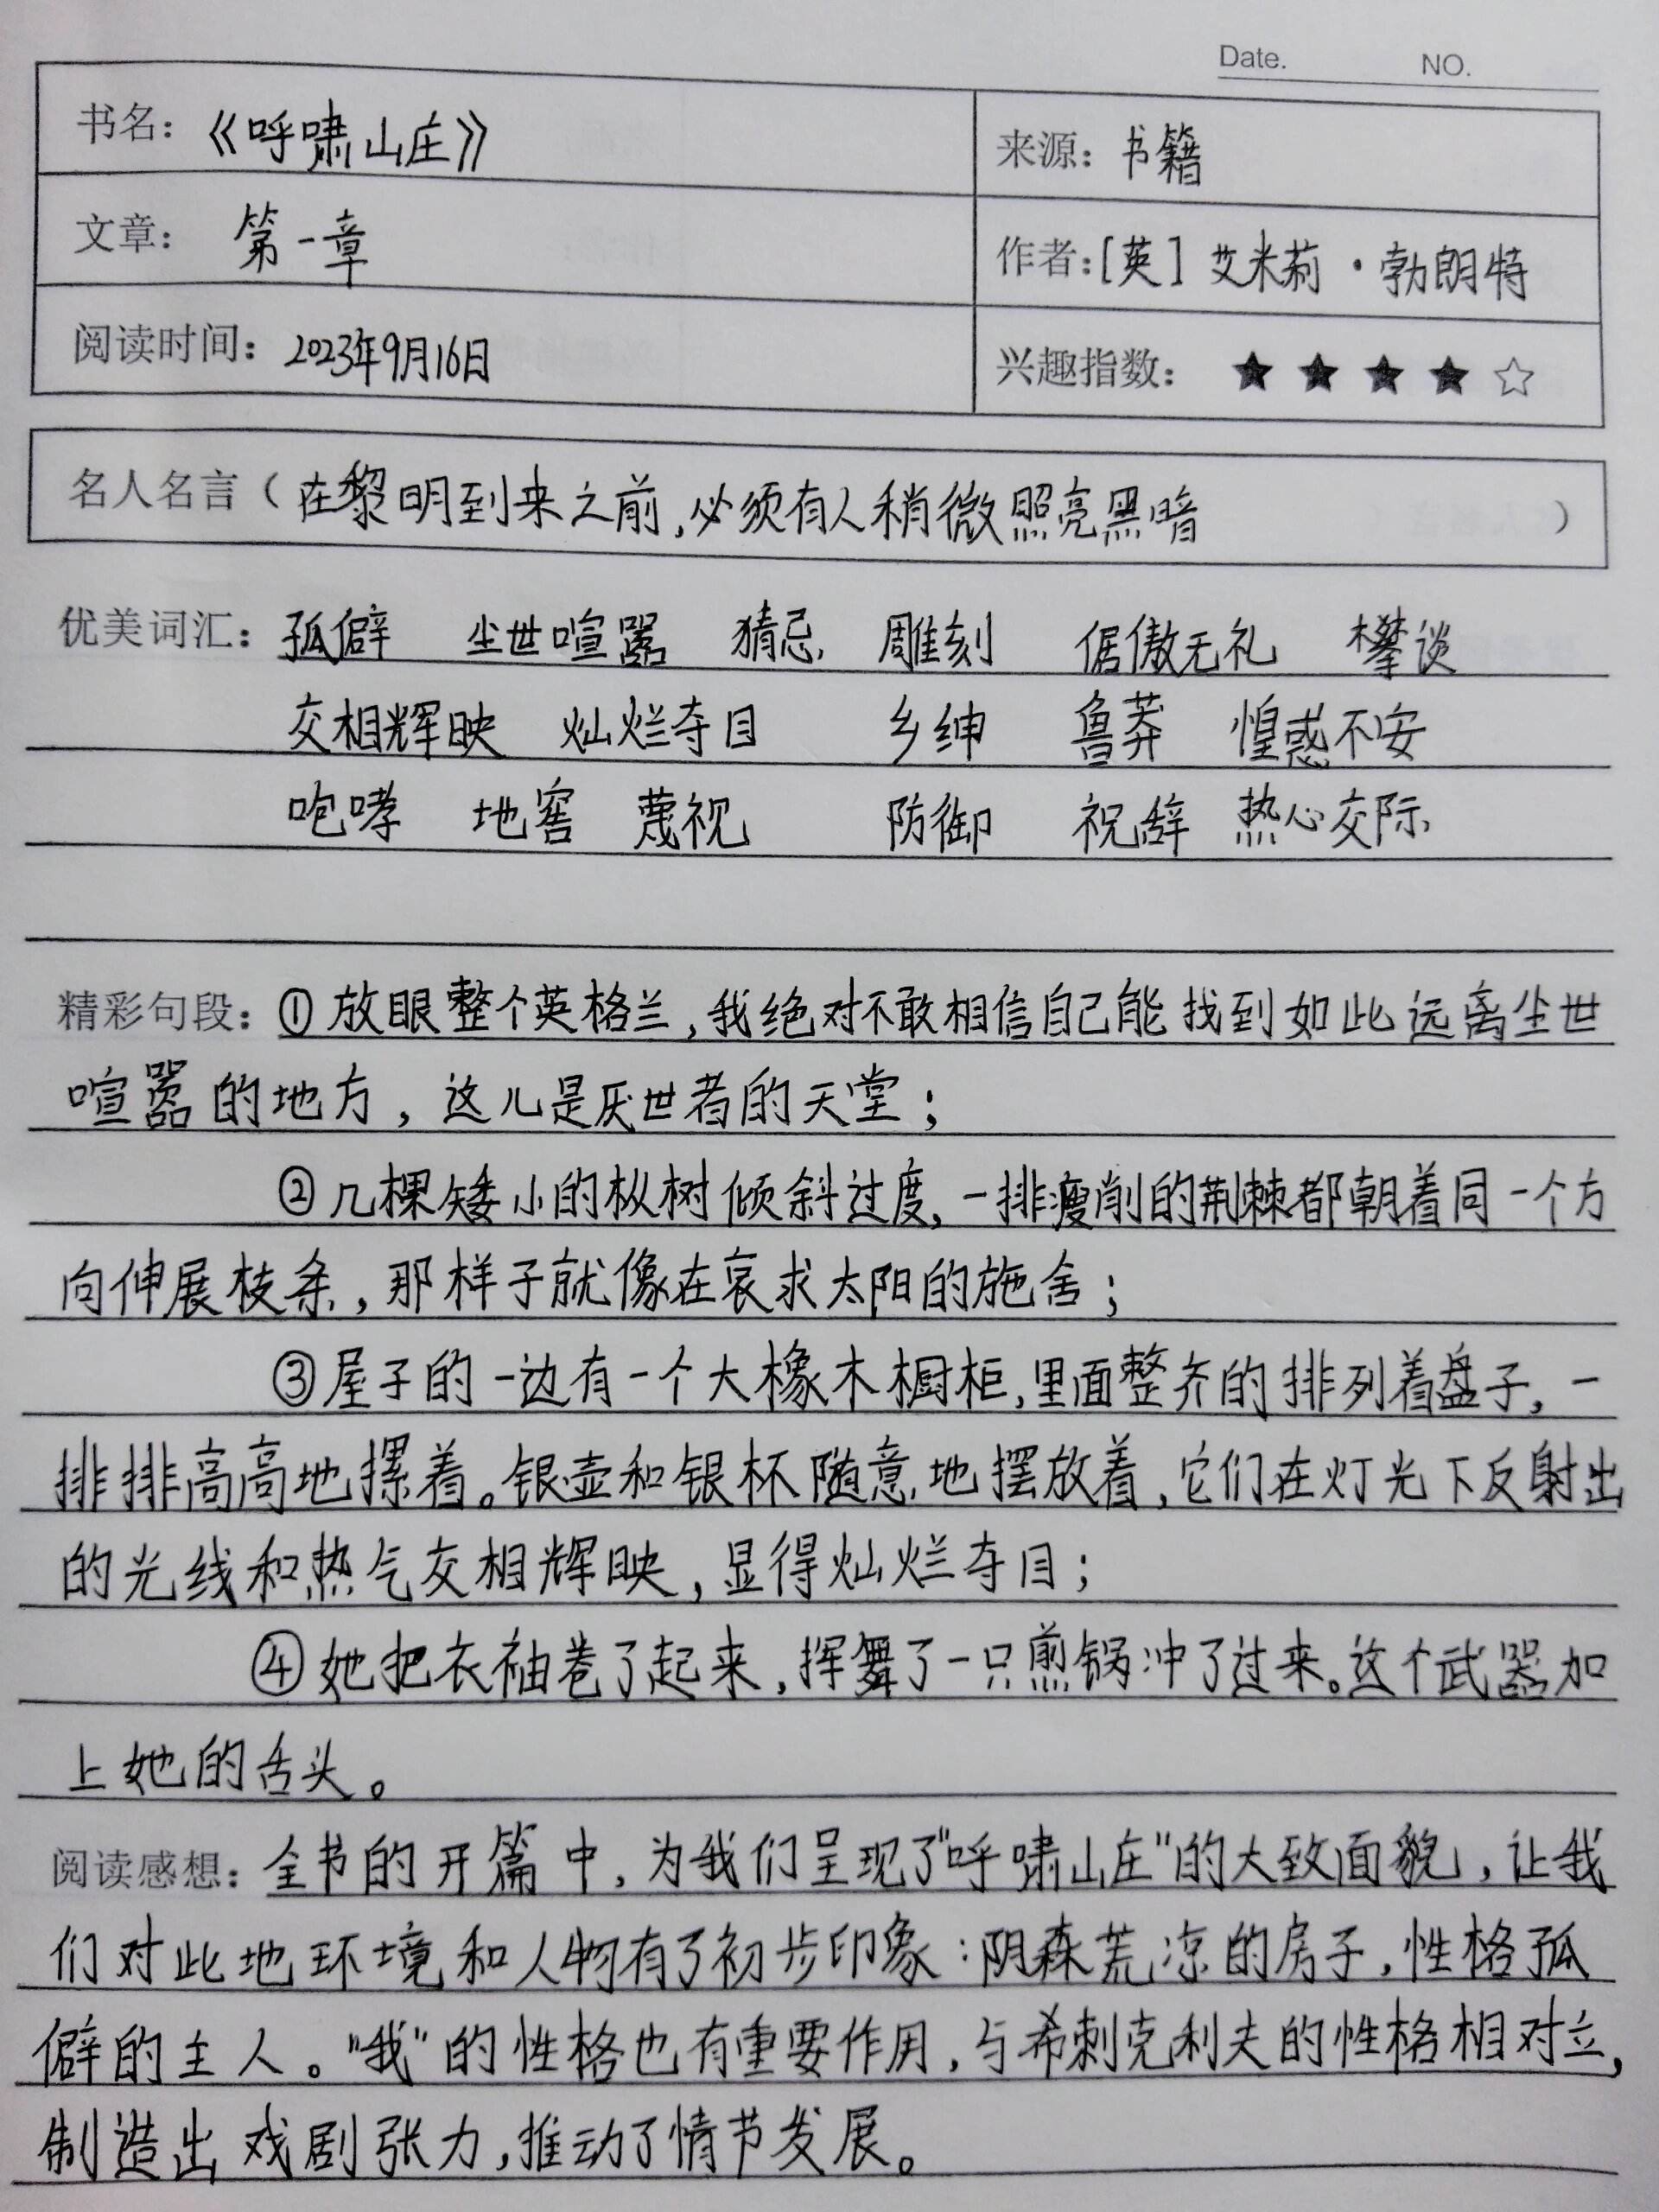 Date. NO.
书名：《呼啸山庄》 来源：书籍
文章：第一章 作者：[英] 艾米莉·勃朗特
阅读时间：2023年9月16日 兴趣指数：★★★★☆
名人名言（在黎明到来之前,必须有人稍微照亮黑暗）
优美词汇：孤僻 尘世喧嚣 猜忌 雕刻 倨傲无礼 攀谈
交相辉映 灿烂夺目 乡绅 鲁莽 惶惑不安
咆哮 地窖 蔑视 防御 祝辞 热心交际
精彩句段：①放眼整个英格兰,我绝对不敢相信自己能找到如此远离尘世
喧嚣的地方,这儿是厌世者的天堂;
②几棵矮小的枞树倾斜过度,一排瘦削的荆棘都朝着同一个方
向伸展枝条,那样子就像在哀求太阳的施舍;
③屋子的一边有一个大橡木橱柜,里面整齐的排列着盘子,一
排排高高地摞着。银壶和银杯随意地摆放着,它们在灯光下反射出
的光线和热气交相辉映,显得灿烂夺目;
④她把衣袖卷了起来,挥舞了一只煎锅冲了过来。这个武器加
上她的舌头。
阅读感想：全书的开篇中,为我们呈现了"呼啸山庄"的大致面貌,让我
们对此地环境和人物有了初步印象:阴森荒凉的房子,性格孤
僻的主人。"我"的性格也有重要作用,与希刺克利夫的性格相对立,
制造出戏剧张力,推动了情节发展。